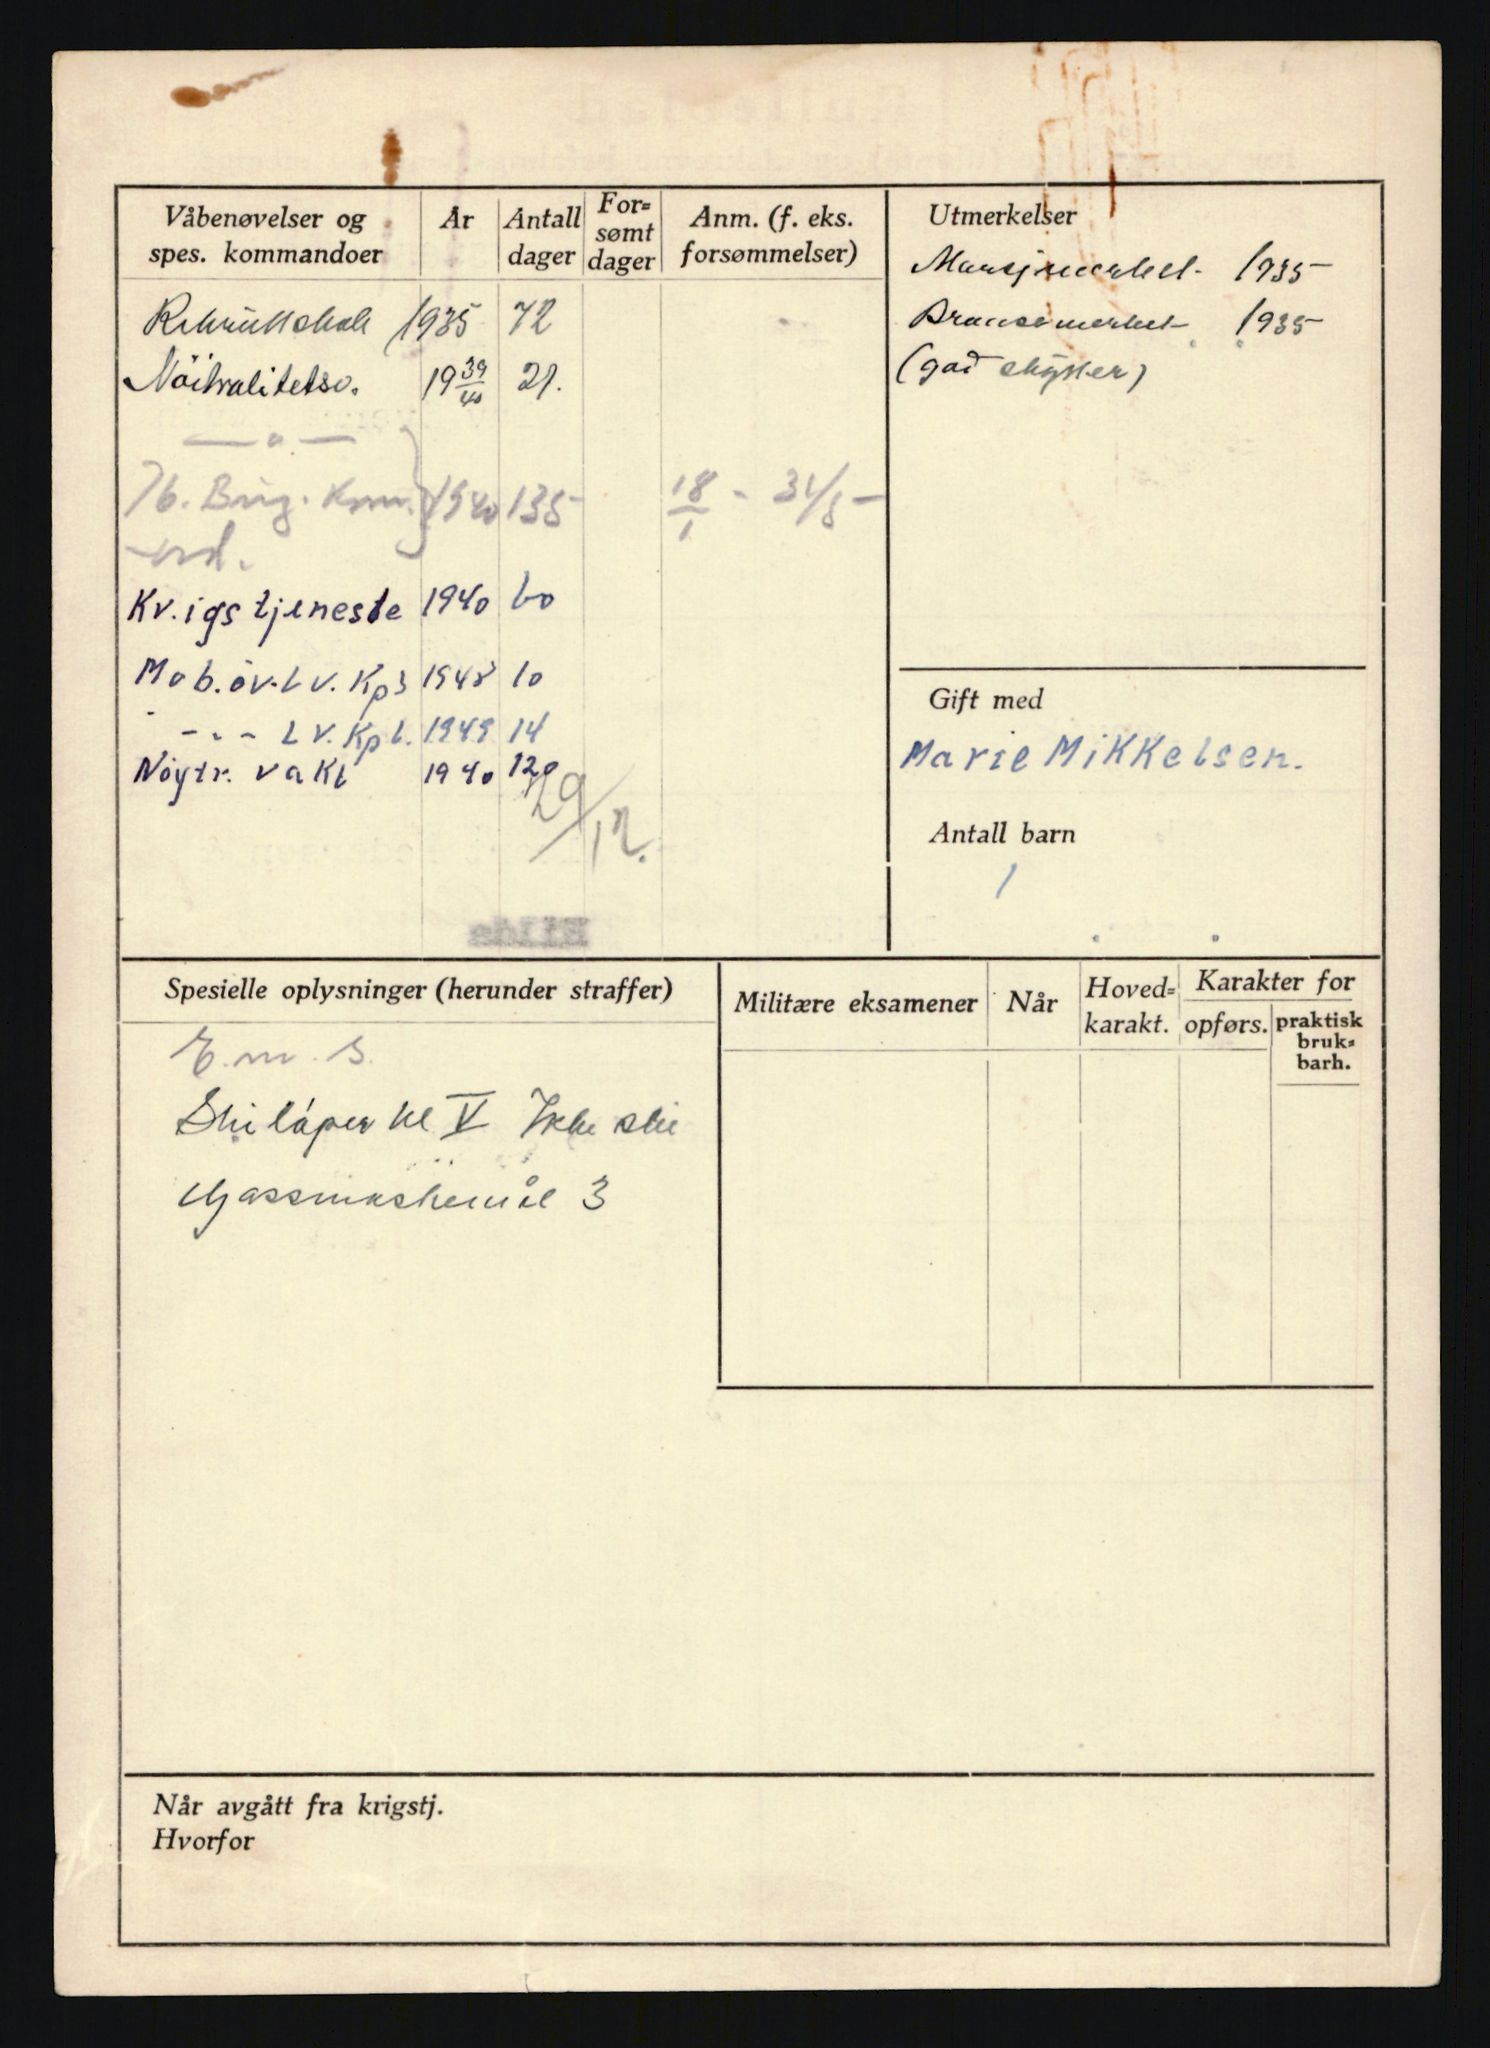 Våbenøvelser og spes. kommandoer | År | Antall dager | For= sømt dager | Anm. (f. eks. forsømmelser)
Rekruttskole 1935 72
Nöitralitetsv. 19 39/40 21.
— " —
/6. Brig. Kom. 1940 135 18/1 - 31/5 —
ord.
Kv.igstjeneste 1940 60
Mob.öv. Lv. Kp 3 1948 10
- " - Lv. Kp 6. 1949 14
Nöytr. vakt 1940 120
29/12.
Utmerkelser
Marsjmerket 1935
Bronsemerket 1935
(god skytter)
Gift med
Marie Mikkelsen.
Antall barn
1
Spesielle oplysninger (herunder straffer)
E.m.S.
Skiløper kl V Ikke ski
Gassmaskemål 3
Militære eksamener | Når | Hoved= karakt. | Karakter for
opførs. | praktisk bruk= barh.
Når avgått fra krigstj.
Hvorfor